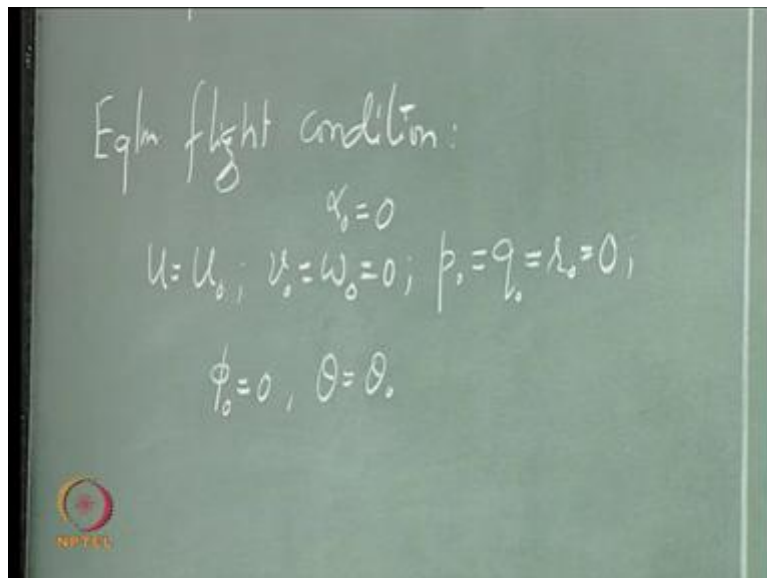 Eqlm flight condition:
α₀=0
U=U₀; v₀=w₀=0; p₀=q₀=r₀=0;
ϕ₀=0, θ=θ₀
NPTEL